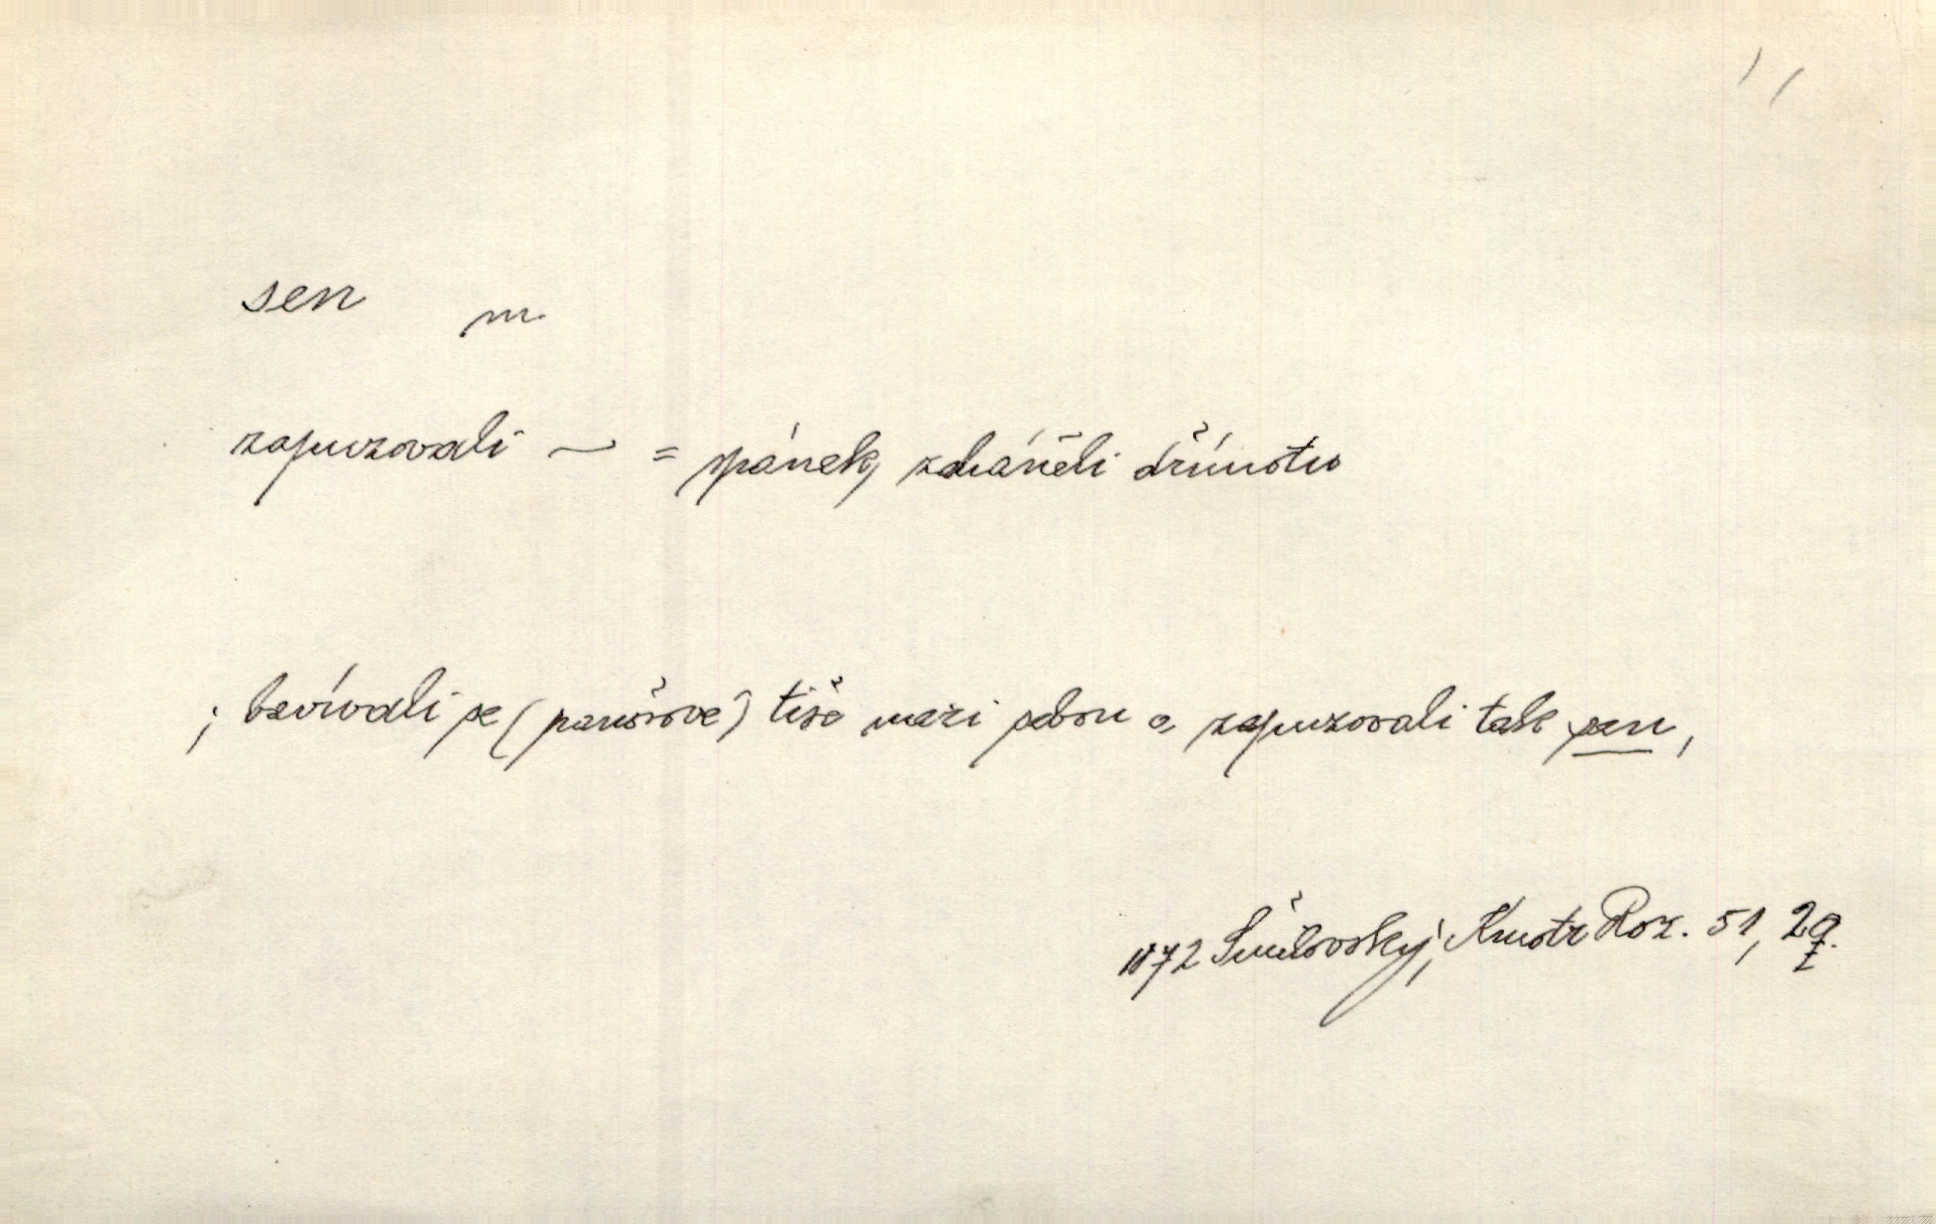 sen m.
zapuzovali ~ = spánek, zaháněli dřímotu
; bavívali se (panošové) tiše mezi sebou a zapuzovali tak sen,
1872 Šmilovský, Kmotr Roz. 51, 2